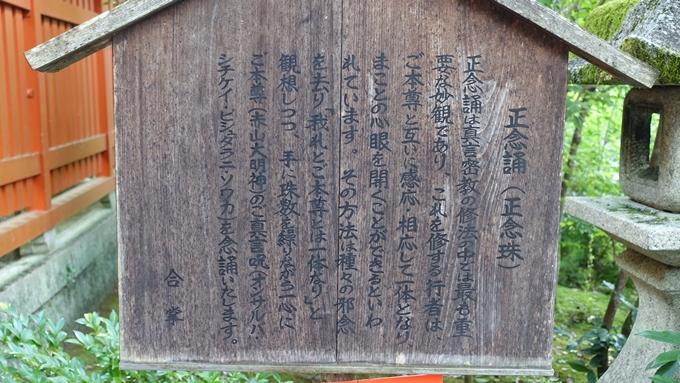 正念誦(正念珠)
正念誦は真言密教の修法の中でも最も重
要な妙観であり、これを修する行者は、
ご本尊と互いに感応、相応して一体となり
まことの心眼を開くことができるといわ
れています。その方法は種々の邪念
を去り「我れとご本尊とは一体なり」と
観想しつつ、手に珠数を繰りながら一心に
ご本尊(赤山大明神)のご真言呪(オンサルバ・
シチケイ・ビシュダラニ・ソワカ)を念誦いたします。
合掌